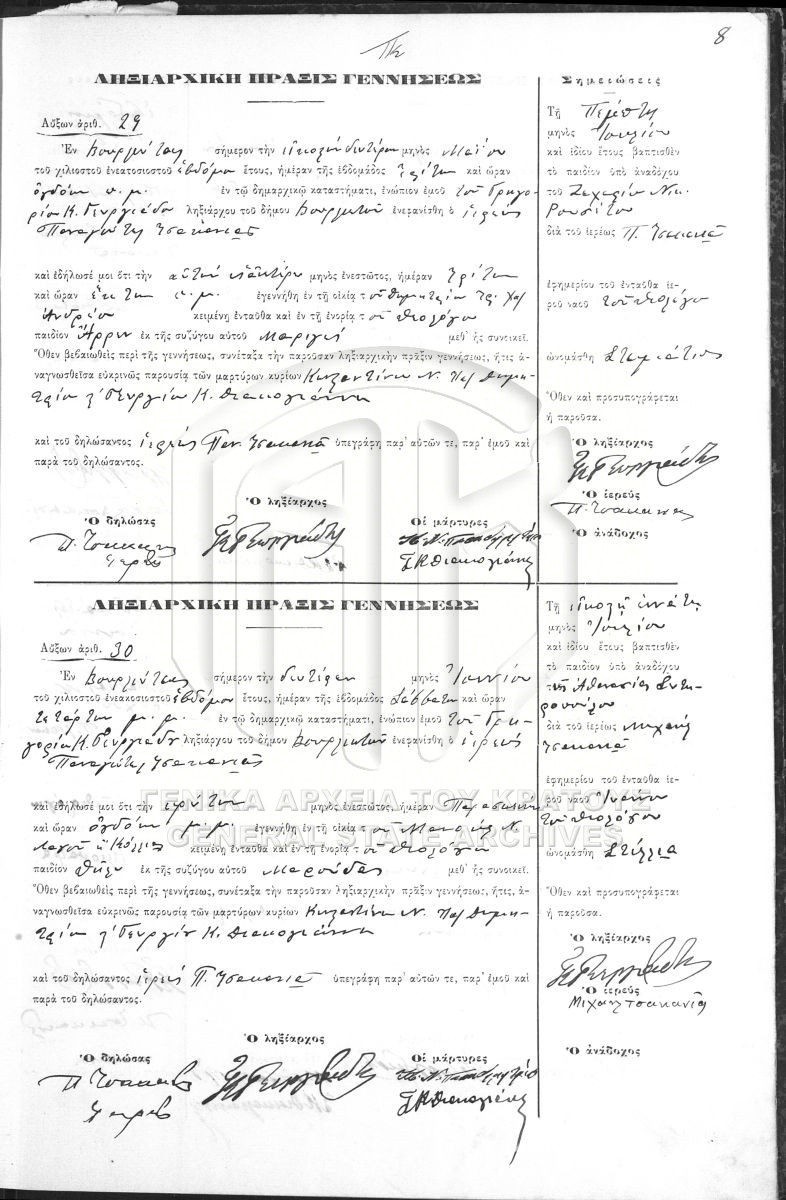 8
ΛΗΞΙΑΡΧΙΚΗ ΠΡΑΞΙΣ ΓΕΝΝΗΣΕΩΣ
Αὔξων ἀριθ. 29
Ἐν Βουρλιώταις σήμερον τὴν εἰκοστὴν δευτέραν μηνὸς Μαΐου
τοῦ χιλιοστοῦ ἐνεατοσιοστοῦ ἑβδόμου ἔτους, ἡμέραν τῆς ἑβδομάδος Τρίτην καὶ ὥραν
ὀγδόην π. μ. ἐν τῷ δημαρχικῷ καταστήματι, ἐνώπιον ἐμοῦ τοῦ Γρηγο-
ρίου Κ. Γεωργιάδου ληξιάρχου τοῦ δήμου Βουρλιωτῶν ἐνεφανίσθη ὁ ἱερεὺς
Παναγιώτης Τσακανιᾶς
καὶ ἐδήλωσέ μοι ὅτι τὴν αὐτὴν δευτέραν μηνὸς ἐνεστῶτος, ἡμέραν Τρίτην
καὶ ὥραν ἕκτην π. μ. ἐγεννήθη ἐν τῇ οἰκίᾳ τοῦ Δημητρίου
Ἀνδρέου κειμένῃ ἐνταῦθα καὶ ἐν τῇ ἐνορίᾳ τοῦ Θεολόγου
παιδίον Ἄρρεν ἐκ τῆς συζύγου αὐτοῦ Μαριγῶς μεθ᾽ ἧς συνοικεῖ.
Ὅθεν βεβαιωθεὶς περὶ τῆς γεννήσεως, συνέταξα τὴν παροῦσαν ληξιαρχικὴν πρᾶξιν γεννήσεως, ἥτις ἀ-
ναγνωσθεῖσα εὐκρινῶς παρουσίᾳ τῶν μαρτύρων κυρίων Κωνσταντίνου Ν. Παπ Δημη-
τρίου Γεωργίου Κ. Διακογιάννη
καὶ τοῦ δηλώσαντος ἱερεὺς Παν. Τσακανιᾶ ὑπεγράφη παρ᾽ αὐτῶν τε, παρ᾽ ἐμοῦ καὶ
παρὰ τοῦ δηλώσαντος.
Ὁ δηλώσας Ὁ ληξίαρχος Οἱ μάρτυρες
Π. Τσακανιᾶς Γ. Κ. Γεωργιάδης Κ. Ν. Παπαδημητρίου
ἱερεὺς Γ. Κ. Διακογιάννης
Σημειώσεις
Τῇ Πέμπτῃ
μηνὸς Ἰουλίου
καὶ ἰδίου ἔτους βαπτισθὲν
τὸ παιδίον ὑπὸ ἀναδόχου
τοῦ Ζαχαρίου Νικ.
διὰ τοῦ ἱερέως Π. Τσακανιᾶ
ἐφημερίου τοῦ ἐνταῦθα ἱε-
ροῦ ναοῦ τοῦ Θεολόγου
ὠνομάσθη Σταμάτιος
Ὅθεν καὶ προσυπογράφεται
ἡ παροῦσα.
Ὁ ληξίαρχος
Γ. Κ. Γεωργιάδης
Ὁ ἱερεὺς
Π. Τσακανιᾶς
Ὁ ἀνάδοχος
ΛΗΞΙΑΡΧΙΚΗ ΠΡΑΞΙΣ ΓΕΝΝΗΣΕΩΣ
Αὔξων ἀριθ. 30
Ἐν Βουρλιώταις σήμερον τὴν δευτέραν μηνὸς Ἰουνίου
τοῦ χιλιοστοῦ ἐνεακοσιοστοῦ ἑβδόμου ἔτους, ἡμέραν τῆς ἑβδομάδος Σάββατον καὶ ὥραν
τετάρτην μ. μ. ἐν τῷ δημαρχικῷ καταστήματι, ἐνώπιον ἐμοῦ τοῦ Γρη-
γορίου Κ. Γεωργιάδου ληξιάρχου τοῦ δήμου Βουρλιωτῶν ἐνεφανίσθη ὁ ἱερεὺς
Παναγιώτης Τσακανιᾶς
καὶ ἐδήλωσέ μοι ὅτι τὴν πρώτην μηνὸς ἐνεστῶτος, ἡμέραν Παρασκευὴν
καὶ ὥραν ὀγδόην μ. μ. ἐγεννήθη ἐν τῇ οἰκίᾳ τοῦ Μανουὴλ Ν.
κειμένῃ ἐνταῦθα καὶ ἐν τῇ ἐνορίᾳ τοῦ Θεολόγου
παιδίον Θῆλυ ἐκ τῆς συζύγου αὐτοῦ Μαρούδας μεθ᾽ ἧς συνοικεῖ.
Ὅθεν βεβαιωθεὶς περὶ τῆς γεννήσεως, συνέταξα τὴν παροῦσαν ληξιαρχικὴν πρᾶξιν γεννήσεως, ἥτις, ἀ-
ναγνωσθεῖσα εὐκρινῶς παρουσίᾳ τῶν μαρτύρων κυρίων Κωνσταντίνου Ν. Παπ Δημη-
τρίου Γεωργίου Κ. Διακογιάννη
καὶ τοῦ δηλώσαντος ἱερεὺς Π. Τσακανιᾶ ὑπεγράφη παρ᾽ αὐτῶν τε, παρ᾽ ἐμοῦ καὶ
παρὰ τοῦ δηλώσαντος.
Ὁ δηλώσας Ὁ ληξίαρχος Οἱ μάρτυρες
Π. Τσακανιᾶς Γ. Κ. Γεωργιάδης Κ. Ν. Παπαδημητρίου
ἱερεὺς Γ. Κ. Διακογιάννης
Τῇ εἰκοστῇ ἐννάτῃ
μηνὸς Ἰουλίου
καὶ ἰδίου ἔτους βαπτισθὲν
τὸ παιδίον ὑπὸ ἀναδόχου
τῆς Ἀθανασίας
διὰ τοῦ ἱερέως Μιχαὴλ
Τσακανιᾶ
ἐφημερίου τοῦ ἐνταῦθα ἱε-
ροῦ ναοῦ Ἰωάννου
τοῦ Θεολόγου
ὠνομάσθη Στέλλια
Ὅθεν καὶ προσυπογράφεται
ἡ παροῦσα.
Ὁ ληξίαρχος
Γ. Κ. Γεωργιάδης
Ὁ ἱερεὺς
Μιχαηλ τσακανιᾶς
Ὁ ἀνάδοχος
ΓΕΝΙΚΑ ΑΡΧΕΙΑ ΤΟΥ ΚΡΑΤΟΥΣ
GENERAL STATE ARCHIVES